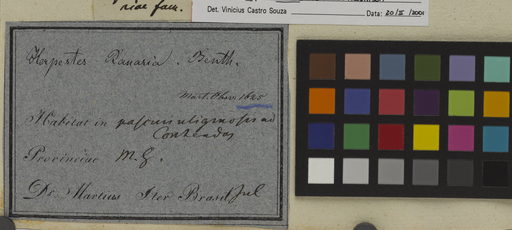 riae fac.
Det. Vinicius Castro Souza Data: 20/II/2001
Herpestes Ranaria. Benth.
Mart. Obs. 1245
Habitat in pascuis uliginosis ad
Contendas
Provinciae M. G.
Dr. Martius Iter Brasil Jul